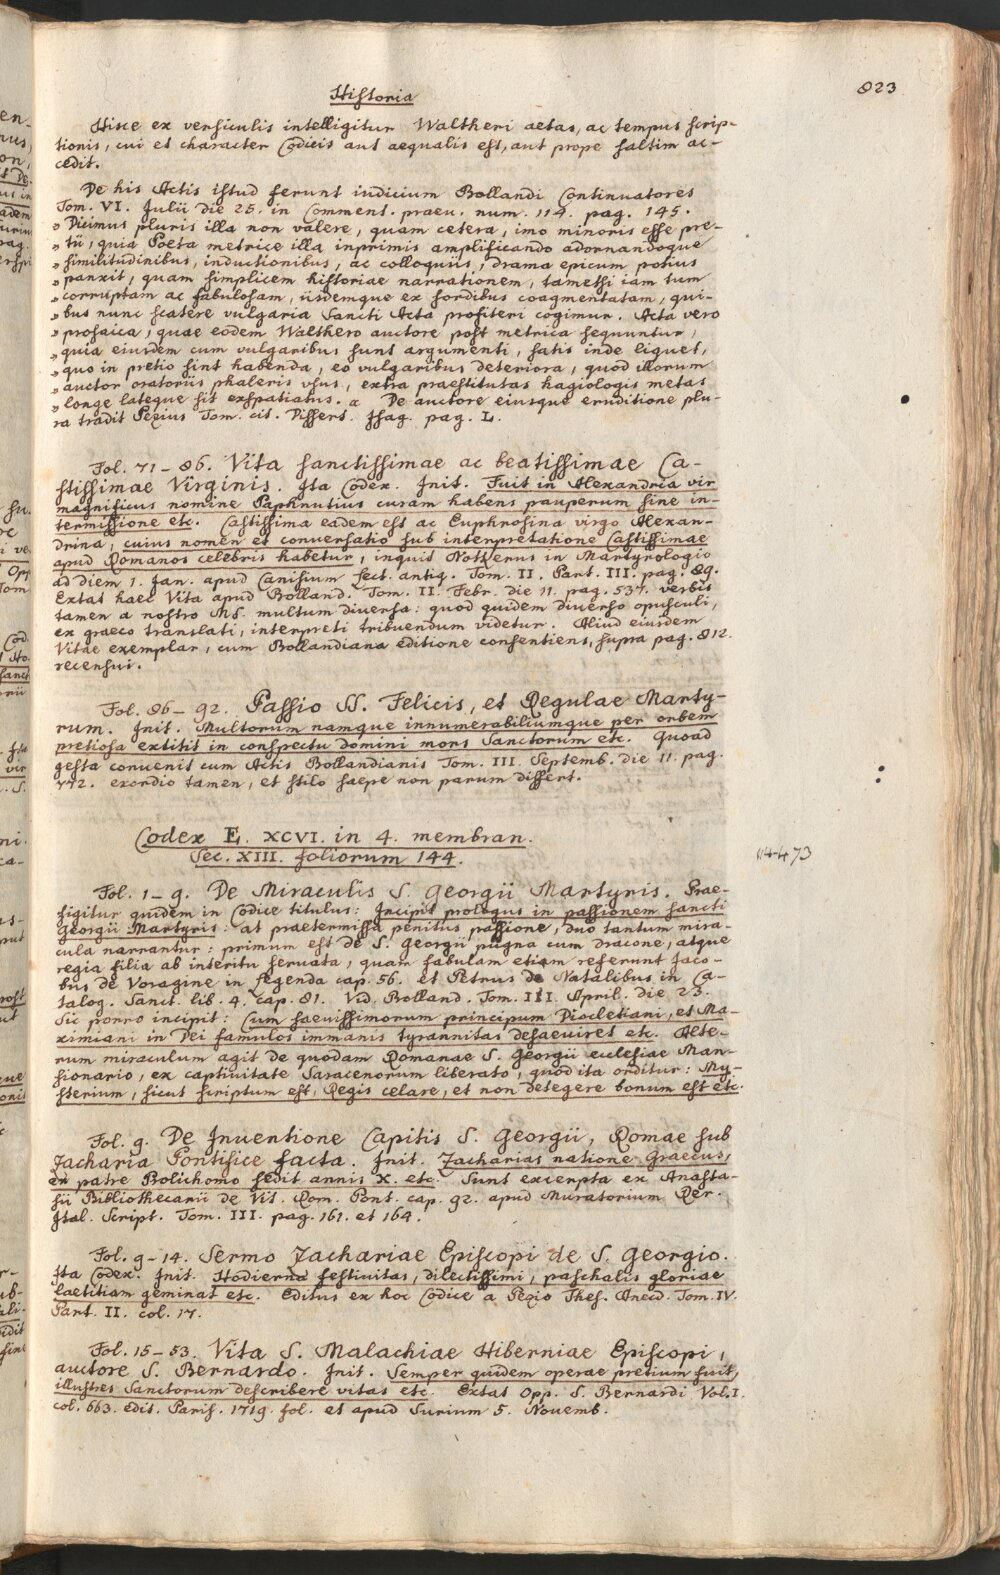 Historia
823
Hisce ex versiculis intelligitur Waltheri aetas, ac tempus scrip-
tionis, cui et character Codicis aut aequalis est, aut prope saltim ac-
cedit.
De his Actis istud ferunt iudicium Bollandi Continuatores
Tom. VI. Julii die 25. in Comment. praeu. num. 114. pag. 145.
„ Dicimus pluris illa non valere, quam cetera, imo minoris esse pre-
„ tii, quia Poeta metrice illa inprimis amplificando adornandoque
„ similitudinibus, inductionibus, ac colloquiis, drama epicum potius
„ panxit, quam simplicem historiae narrationem, tametsi iam tum
„ corruptam ac fabulosam, iisdemque ex sordibus coagmentatam, qui-
„ bus nunc scatere vulgaria Sancti Acta profiteri cogimur. Acta vero
„ prosaica, quae eodem Walthero auctore post metrica sequuntur,
„ quia eiusdem cum vulgaribus sunt argumenti, satis inde liquet,
„ quo in pretio sint habenda, eo vulgaribus deteriora, quod illorum
„ auctor oratoriis phaleris usus, extra praestitutas hagiologis metas
„ longe lateque sit exspatiatus. a De auctore eiusque eruditione plu-
ra tradit Pezius Tom. cit. Dissert. Isag. pag. L.
Fol. 71-86. Vita sanctissimae ac beatissimae Ca-
stissimae Virginis. Ita Codex. Init. Fuit in Alexandria vir
magnificus nomine Paphnutius curam habens pauperum sine in-
termissione etc. Castissima eadem est ac Euphrosina virgo Alexan-
drina, cuius nomen et conversatio sub interpretatione Castissimae
apud Romanos celebris habetur, inquit Notkerus in Martyrologio
ad diem 1. Jan. apud Canisium Lect. antiq. Tom. II. Part. III. pag. 89.
Extat haec Vita apud Bolland. Tom. II. Febr. die 11. pag. 537. verbis
tamen a nostro MS. multum diversa: quod quidem diverso opusculi,
ex graeco translati, interpreti tribuendum videtur. Aliud eiusdem
Vitae exemplar, cum Bollandiana editione consentiens, supra pag. 812.
recensui.
Fol. 86-92. Passio SS. Felicis, et Regulae Marty-
rum. Init. Multorum namque innumerabiliumque per orbem
pretiosa extitit in conspectu domini mors Sanctorum etc. Quoad
gesta convenit cum Actis Bollandianis Tom. III. Septemb. die 11. pag.
772. exordio tamen, et stilo saepe non parum differt.
Codex E. XCVI. in 4. membran.
Sec. XIII. foliorum 144.
Fol. 1-9. De Miraculis S. Georgii Martyris. Prae-
figitur quidem in Codice titulus: Incipit prologus in passionem sancti
Georgii Martyris: at praetermissa penitus passione, duo tantum mira-
cula narrantur: primum est de S. Georgii pugna cum dracone, atque
regia filia ab interitu servata, quam fabulam etiam referunt Jaco-
bus de Voragine in Legenda cap. 56. et Petrus de Natalibus in Ca-
talog. Sanct. lib. 4. cap. 81. Vid. Bolland. Tom. III. April. die 23.
Sic porro incipit: Cum saevissimorum principum Diocletiani, et Ma-
ximiani in Dei famulos immanis tyrannitas desaeviret etc. Alte-
rum miraculum agit de quodam Romanae S. Georgii ecclesiae Man-
sionario, ex captivitate Saracenorum liberato, quod ita orditur: My-
sterium, sicut scriptum est, Regis celare, et non detegere bonum est etc.
Fol. 9. De Inventione Capitis S. Georgii, Romae sub
Zacharia Pontifice facta. Init. Zacharias natione Graecus,
ex patre Polichomo sedit annis X. etc. Sunt excerpta ex Anasta-
sii Bibliothecarii de Vit. Rom. Pont. cap. 92. apud Muratorium Rer.
Ital. Script. Tom. III. pag. 161. et 164.
Fol. 9-14. Sermo Zachariae Episcopi de S. Georgio.
Ita Codex. Init. Hodierna festivitas, dilectissimi, paschalis gloriae
laetitiam geminat etc. Editus ex hoc Codice a Pezio Thes. Anecd. Tom. IV.
Part. II. col. 17.
Fol. 15-53. Vita S. Malachiae Hiberniae Episcopi,
auctore S. Bernardo. Init. Semper quidem operae pretium fuit,
illustres Sanctorum describere vitas etc. Extat Opp. S. Bernardi Vol. I.
col. 663. Edit. Paris. 1719. fol. et apud Surium 5. Novemb.